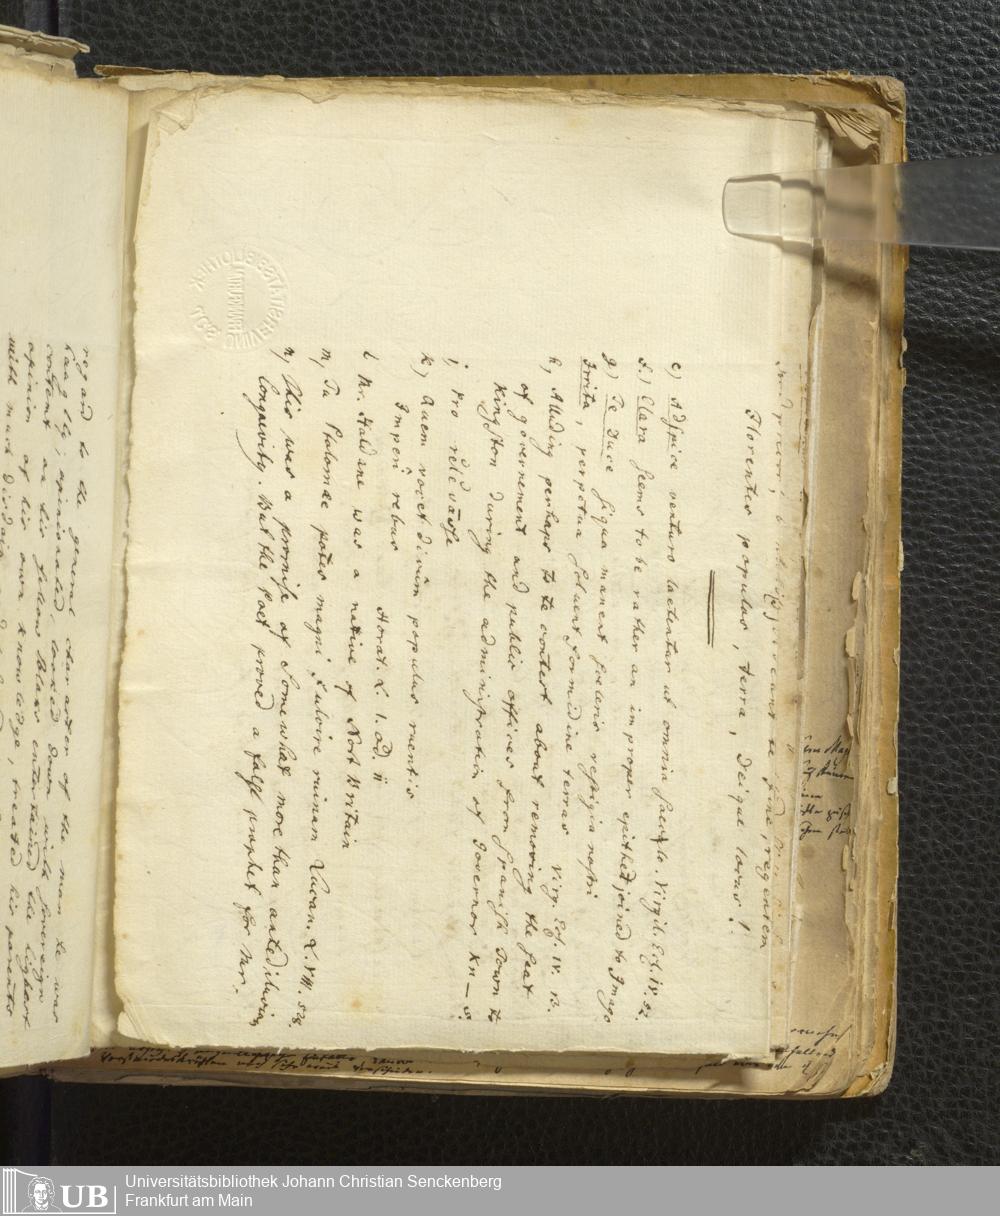 Florentes populos, terra, Deique locus!
e) Adspice venturo laetentur ut omnia saeculo. Virgil. Ecl. IV. 52.
f.) Clara seems to be rather an improper epithet joined to Imago
g) Te duce siqua manent sceleris vestigia nostri
Irrita, perpetua solvent formidine terras Virg. Ecl. IV. 13.
h) Alluding perhaps to te contest about removing the seat
of governement and public offices from Spanish Town to
Kingston during the administration of Governor Kn—s.
i Pro
k) Quem vocet divûm populus ruentis
Imperî rebus Horat. L. 1. Od. ii
l Mr. Haldane was a native of Nort Britain
m) Tu Ptolomæ potes magni fulcire ruinam Lucan. L. VIII. 528.
n) This was a promise of somewhat more than antediluvian
longuevity. But the poet proved a false prophet for Mr.
regard to the general character of the man he was
haughty, opiniated, looked down with sovereign
contemt on his fellow Blaks entertained the highest
opinion of his own knowledge, treated his parents
with much disdain
UNIVERSITÄTSBIBLIOTHEK
UB
Universitätsbibliothek Johann Christian Senckenberg
Frankfurt am Main